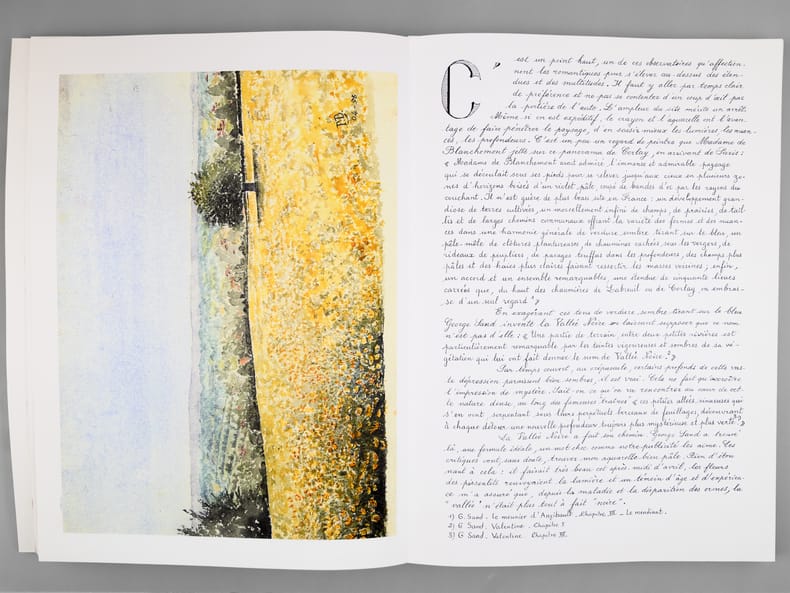 C'est un point haut, un de ces observatoires qu'affection-
nent les romantiques pour s'élever au-dessus des éten-
dues et des multitudes. Il faut y aller par temps clair
de préférence et ne pas se contenter d'un coup d'œil par
la portière de l'auto. L'ampleur du site mérite un arrêt.
Même si on est expéditif, le crayon et l'aquarelle ont l'avan-
tage de faire pénétrer le paysage, d'en saisir mieux les lumières, les nuan-
ces, les profondeurs. C'est un peu un regard de peintre que Madame de
Blanchemont jette sur ce panorama de Corlay, en arrivant de Paris :
« Madame de Blanchemont avait admiré l'immense et admirable paysage
qui se déroulait sous ses pieds pour se relever jusqu'aux cieux en plusieurs zo-
nes d'horizons boisés d'un violet pâle, coupé de bandes d'or par les rayons du
couchant. Il n'est guère de plus beau site en France : un développement gran-
diose de terres cultivées, un morcellement infini de champs, de prairies, de tail-
lis et de larges chemins communaux offrant la variété des formes et des nuan-
ces dans une harmonie générale de verdure sombre tirant sur le bleu, un
pêle-mêle de clôtures plantureuses, de chaumières cachées sous les vergers, de
rideaux de peupliers, de pacages touffus dans les profondeurs, des champs plus
pâles et des haies plus claires faisant ressortir les masses voisines ; enfin,
un accord et un ensemble remarquables, une étendue de cinquante lieues
carrées que, du haut des chaumières de Labreuil ou de Corlay, on embras-
se d'un seul regard ¹»
En exagérant ces tons de verdure sombre tirant sur le bleu
George Sand invente la Vallée Noire en laissant supposer que ce nom
n'est pas d'elle : « Une partie de terrain entre deux petites rivières est
particulièrement remarquable par les teintes vigoureuses et sombres de sa vé-
gétation qui lui ont fait donner le nom de Vallée Noire ²»
Par temps couvert, au crépuscule, certains profonds de cette vas-
te dépression paraissent bien sombres, il est vrai. Cela ne fait qu'accroître
l'impression de mystère. Sait-on ce qu'on va rencontrer au cœur de cet-
te nature dense, au long des fameuses traînes « ces petites allées sinueuses qui
s'en vont serpentant sous leurs perpétuels berceaux de feuillages, découvrant
à chaque détour une nouvelle profondeur toujours plus mystérieuse et plus verte ³»
La Vallée Noire a fait son chemin. George Sand a trouvé
là, une formule idéale, un mot choc comme notre publicité les aime. Les
critiques vont, sans doute, trouver mon aquarelle bien pâle. Rien d'éton-
nant à cela : il faisait très beau cet après-midi d'avril, les fleurs
des pissenlits renvoyaient la lumière et un témoin d'âge et d'expérien-
ce m'a assuré que, depuis la maladie et la disparition des ormes, la
"vallée" n'était plus tout à fait "noire".
1) G. Sand - Le meunier d'Angibault - Chapitre III - Le mendiant.
2) G Sand - Valentine - Chapitre I
3) G Sand - Valentine - Chapitre III.